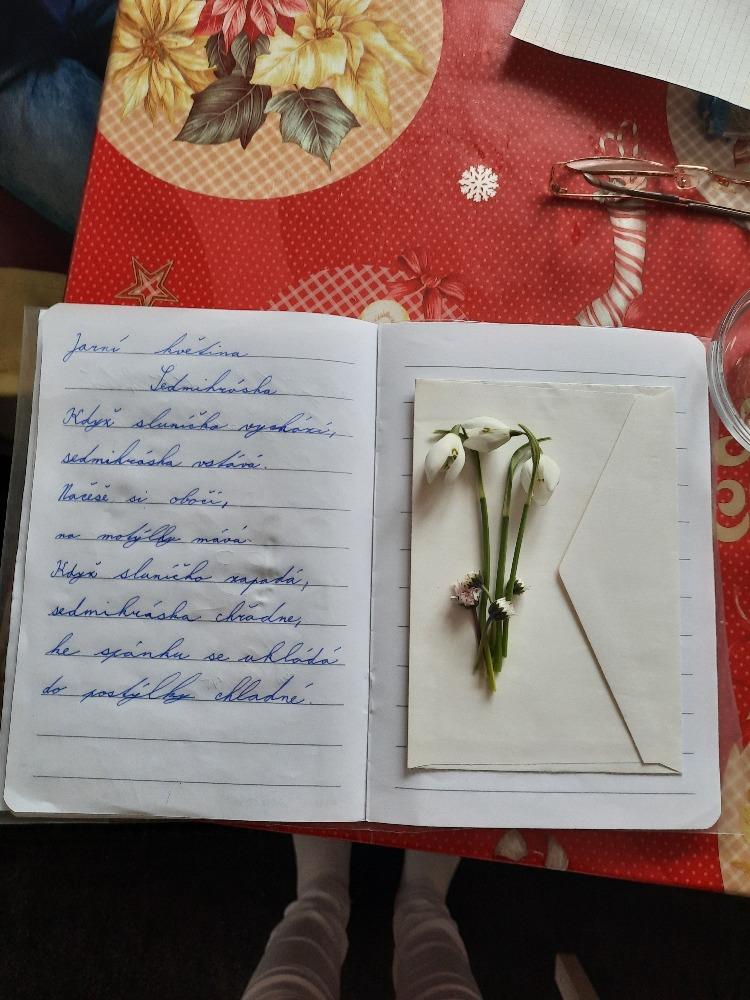 Jarní květina
Sedmikráska
Když sluníčko vychází,
sedmikráska vstává.
Načeše si obočí,
na motýlky mává.
Když sluníčko zapadá,
sedmikráska chřadne,
ke spánku se ukládá
do postýlky chladné.